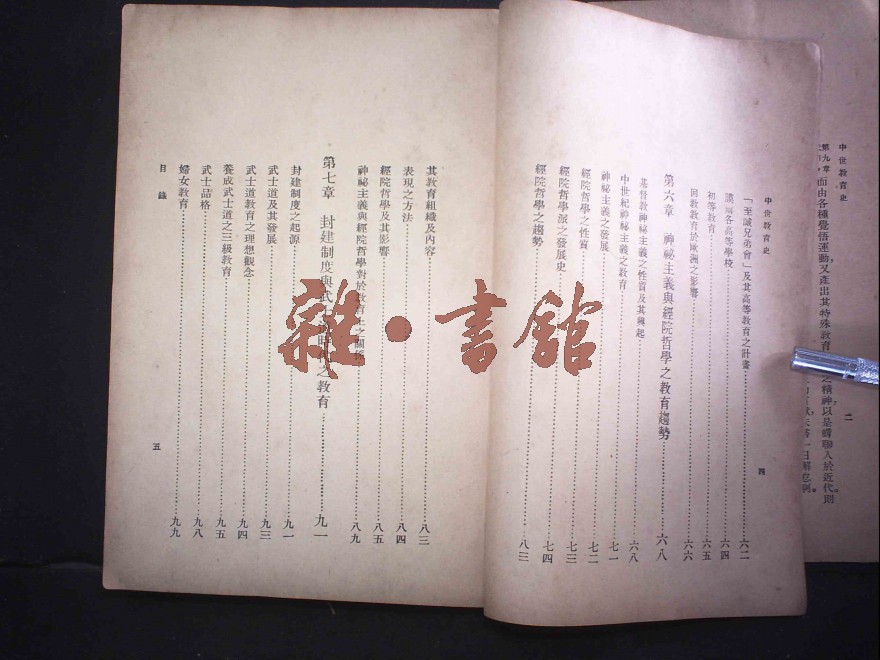 中世教育史
二
第九章
而由各種覺悟運動，又產出其特殊教育
之精神，以是轉聯入於近代則
中世教育史
四
「至誠兄弟會」及其高等教育之計畫……六二
謨司各高等學校……六四
初等教育……六五
回教教育於歐洲之影響……六六
第六章 神祕主義與經院哲學之教育趨勢……六八
基督教神祕主義之性質及其興起……六八
中世紀神祕主義之教育……七一
神祕主義之發展……七二
經院哲學之性質……七三
經院哲學派之發展史……七四
經院哲學之趨勢……八三
其教育組織及內容……八三
表現之方法……八四
經院哲學及其影響……八五
神祕主義與經院哲學對於教育上之關係……八九
第七章 封建制度與武士之教育……九一
封建制度之起源……九一
武士道及其發展……九三
武士道教育之理想觀念……九四
養成武士道之三級教育……九五
武士品格……九八
婦女教育……九九
目錄
五
雜·書館